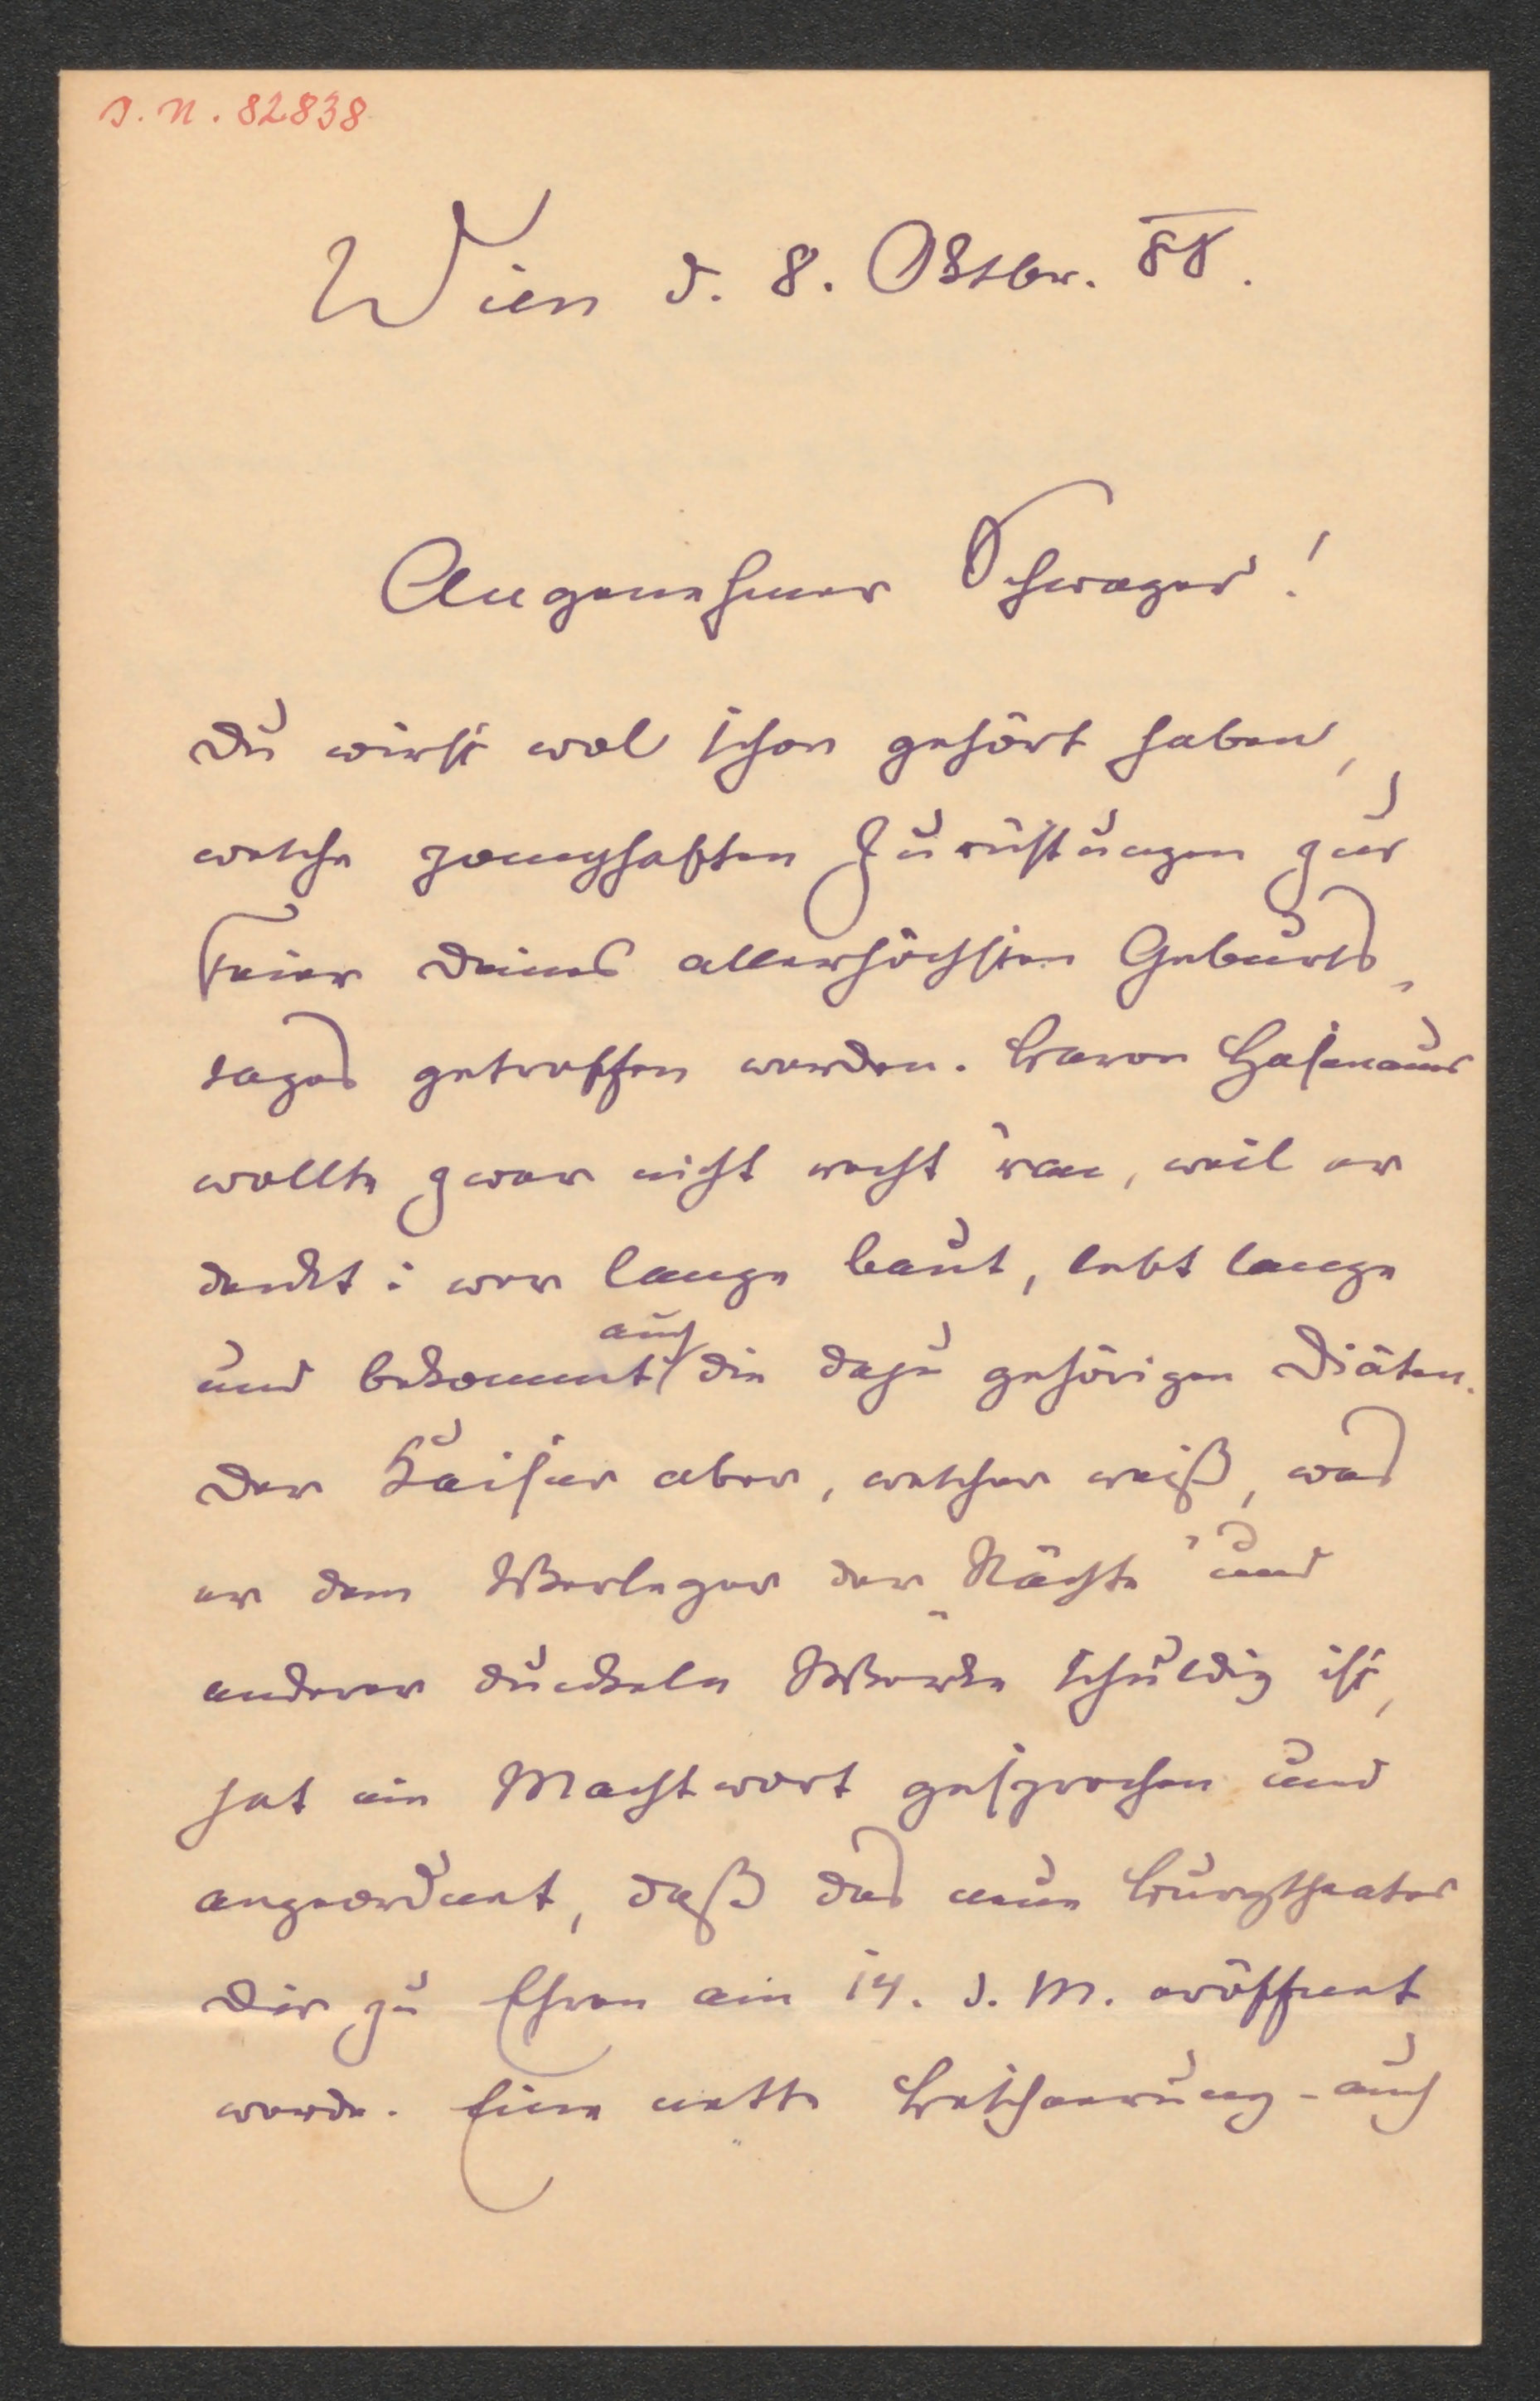 I. N. 82838
Wien d. 8. Oktbr. 88.
Angenehmer Schwager!
Du wirst wol schon gehört haben,
welche pomphaften Zurüstungen zur
Feier Deines allerhöchsten Geburts-
tages getroffen werden. Baron Hasenauer
wollte zwar nicht recht 'ran, weil er
denkt: wer lange baut, lebt lange
und bekommt auch die dazu gehörigen Diäten.
Der Kaiser aber, welcher weiß, was
er dem Verleger der „Nächte" und
anderer dunkeln Werke schuldig ist,
hat ein Machtwort gesprochen und
angeordnet, daß das neue Burgtheater
Dir zu Ehren am 14. d. M. eröffnet
werde. Eine nette Bescheerung - auch